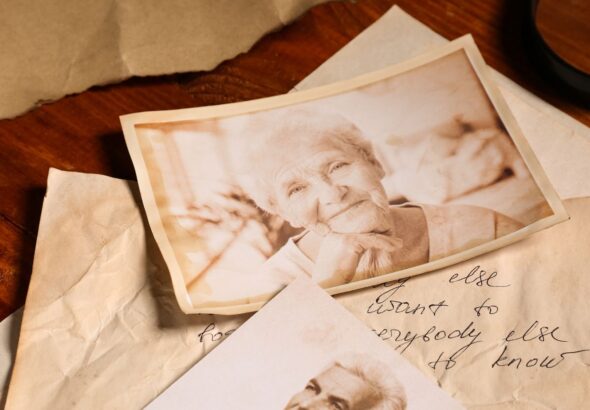 y else
want to
everybody else
to know